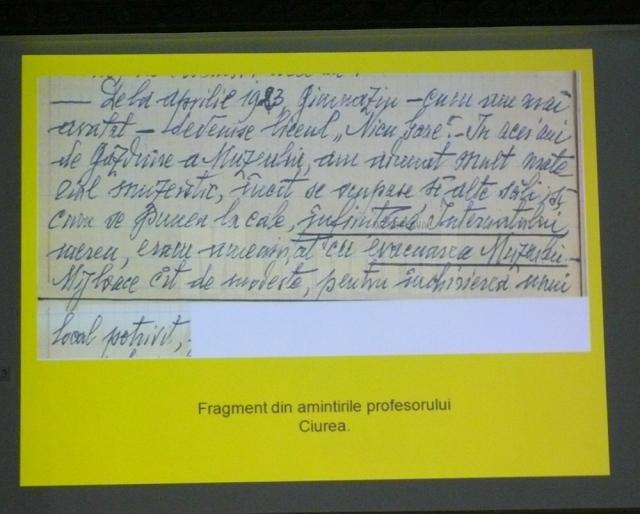 — Dela aprilie 1923, Gimnaziu – cum am mai
arătat – devenise liceul „Nicu Gane". – In acei ani
de găzduire a Muzeului, am adunat mult mate
rial muzeistic, încît se ocupase și alte săli și
cum se punea la cale, înființarea Internatului,
mereu, eram amenințat cu evacuarea Muzeului. –
Mijloace cît de modeste, pentru închirierea unui
local potrivit,
Fragment din amintirile profesorului
Ciurea.